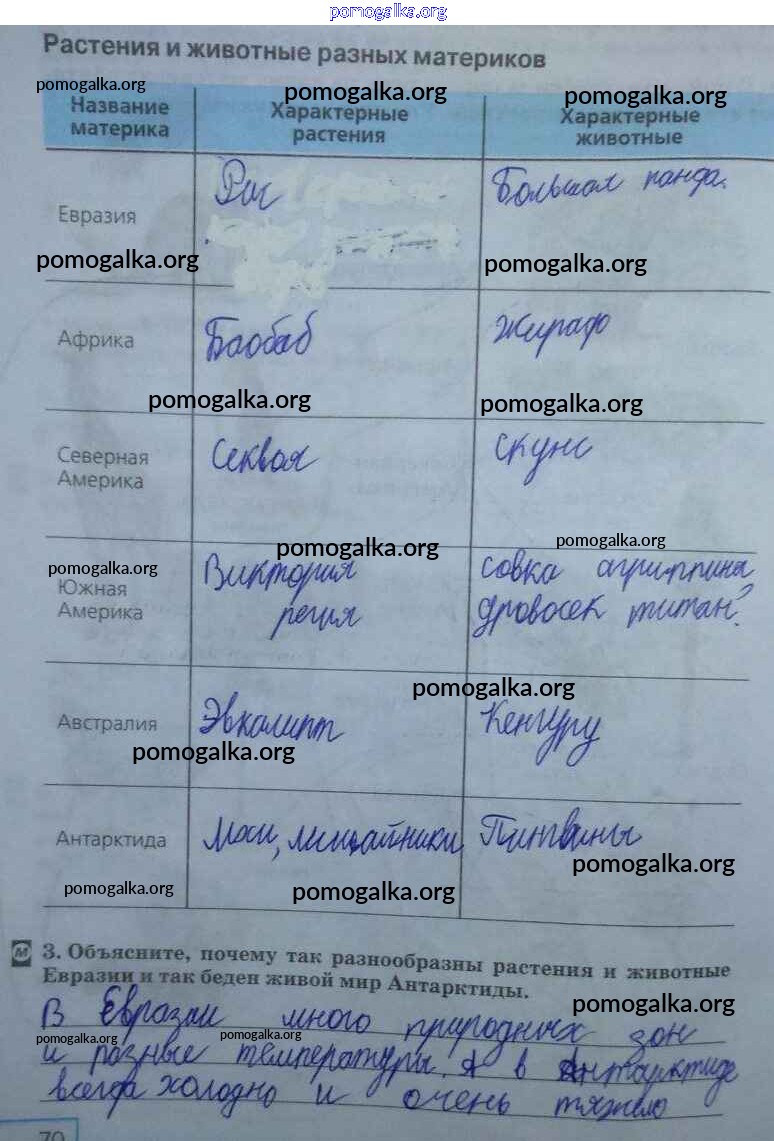 pomogalka.org
Растения и животные разных материков
pomogalka.org
pomogalka.org
pomogalka.org
Название материка
Характерные растения
Характерные животные
Евразия
Рис
Большая панда.
pomogalka.org
pomogalka.org
Африка
Баобаб
Жираф
pomogalka.org
pomogalka.org
Северная Америка
Секвоя
Скунс
pomogalka.org
pomogalka.org
pomogalka.org
Южная Америка
Виктория регия
совка агриппина, дровосек титан.
pomogalka.org
Австралия
Эвкалипт
Кенгуру
pomogalka.org
Антарктида
Мхи, лишайники
Пингвины
pomogalka.org
pomogalka.org
pomogalka.org
М 3. Объясните, почему так разнообразны растения и животные
Евразии и так беден живой мир Антарктиды.
pomogalka.org
В Евразии много природных зон
pomogalka.org
pomogalka.org
и разные температуры. А в Антарктиде
всегда холодно и очень тяжело
70